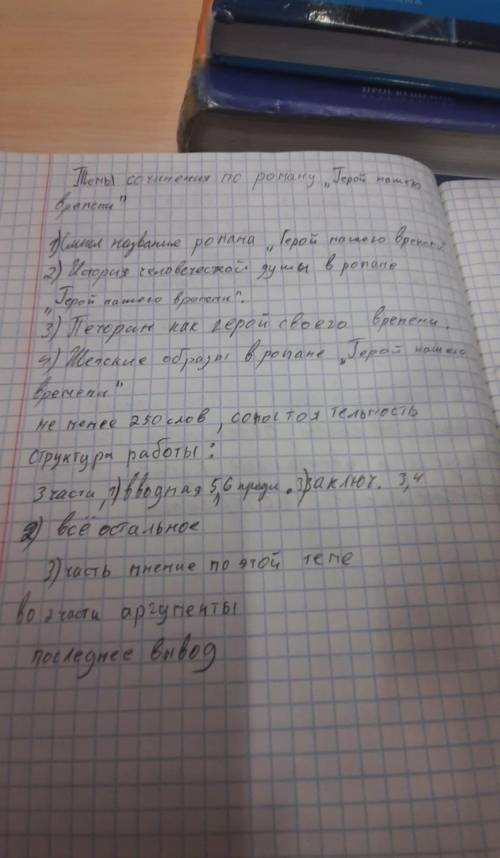 ПРОСВЕЩЕНИЕ
Темы сочинения по роману „Герой нашего
времени"
1) Смысл название романа „Герой нашего времени
2) История человеческой души в романе
„Герой нашего времени".
3) Печорин как герой своего времени.
4) Женские образы в романе „Герой нашего
времени"
не менее 250 слов, самостоятельность
структура работы:
3 части, 1) вводная 5,6 предл. 3) заключ. 3,4
2) всё остальное
3) часть мнение по этой теме
во 2 части аргументы
последнее вывод